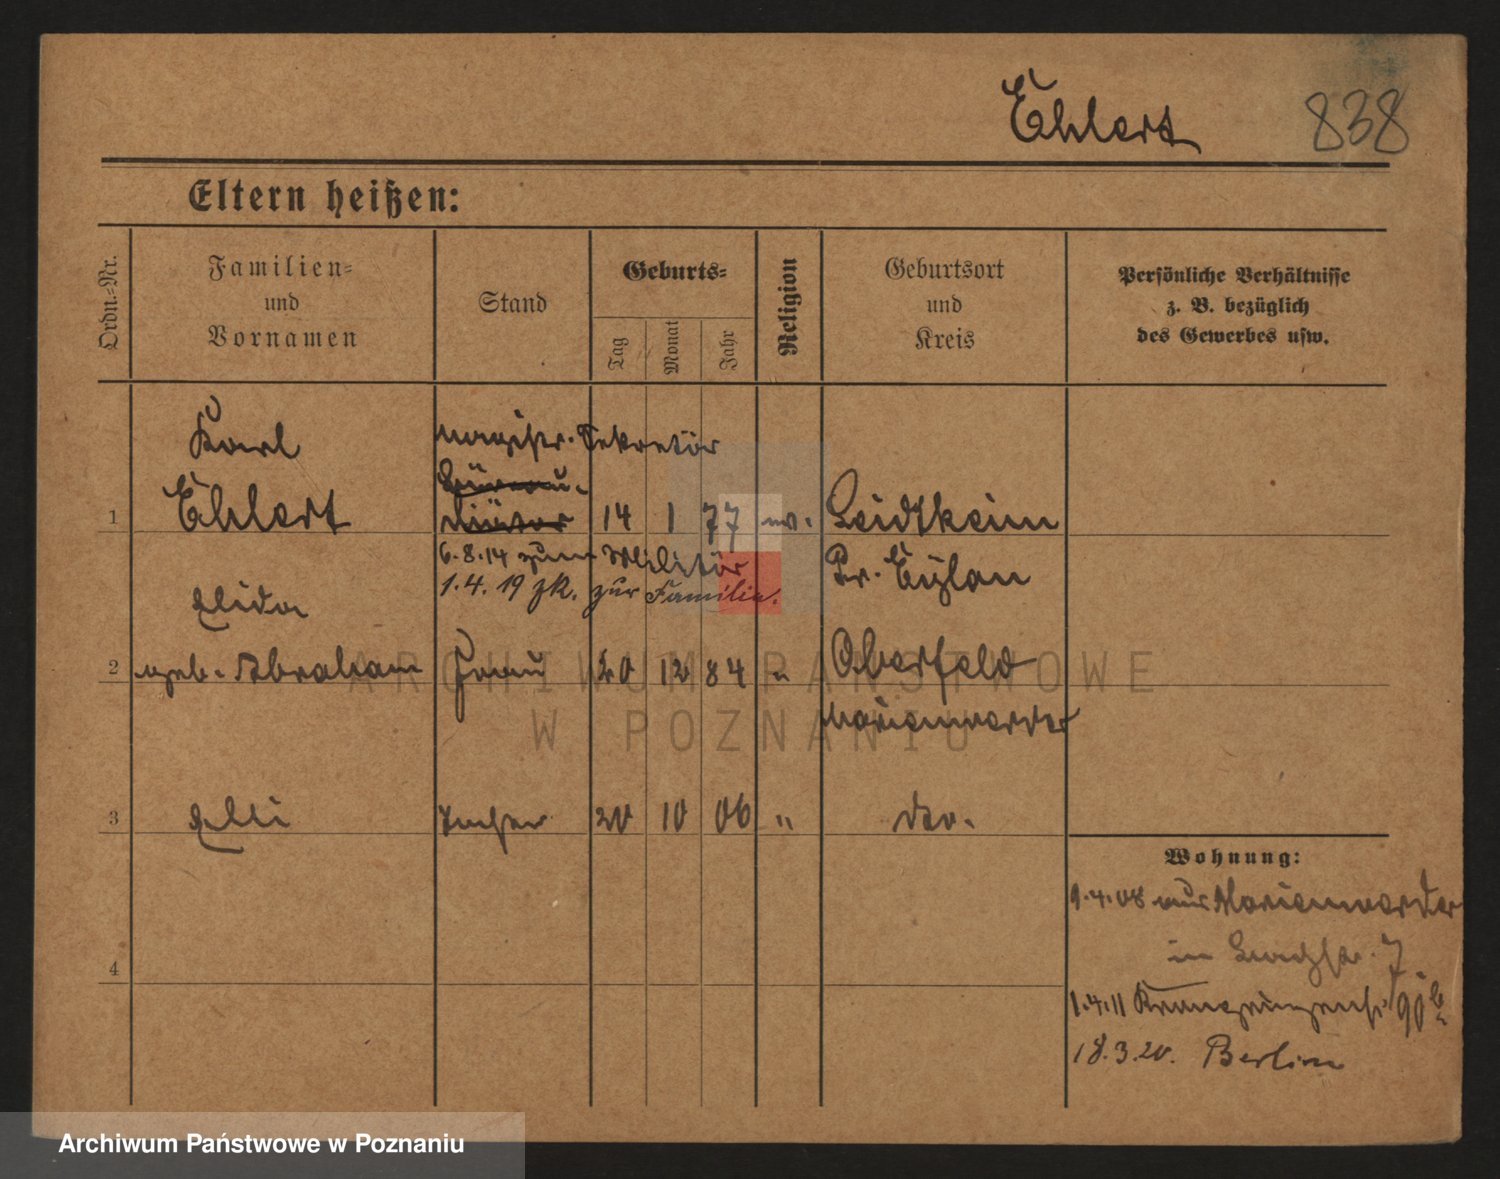 Ehlert 838
Eltern heißen:
Ordn.-Nr.
Familien-
und
Vornamen
Stand
Geburts-
Tag
Monat
Jahr
Religion
Geburtsort
und
Kreis
Persönliche Verhältnisse
z. B. bezüglich
des Gewerbes usw.
Karl
Magistr. Sekretär
Büreau-
1 Ehlert Diätar 14 1 77 ev. Leidtkeim
6.8.14 zum Militär Pr. Eylau
1.4.19 zk. zur Familie.
Lida
2 geb. Abraham Frau 20 12 84 " Oberfeld
Marienwerder
3 Elli Tochter 20 10 06 " do.
4
Wohnung:
9.4.08 aus Marienwerder
in 7
1.4.11 90
18.3.20. Berlin
ARCHIWUM PAŃSTWOWE
W POZNANIU
Archiwum Państwowe w Poznaniu